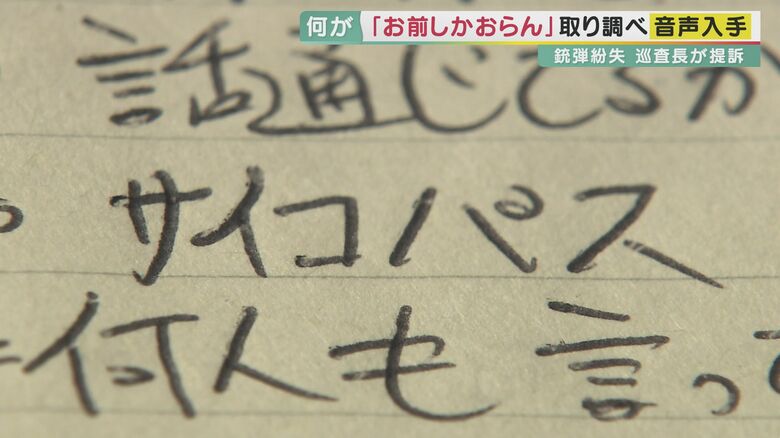 何が「お前しかおらん」取り調べ 音声入手
銃弾紛失 巡査長が提訴
話通じてるか
サイコパス
何人も言って